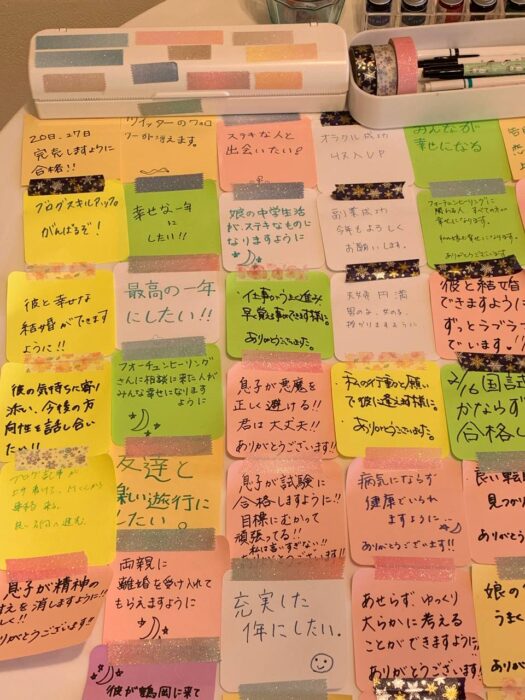 20日、27日
完売しますように
合格!!
ツイッターのフォロ
ワーが増えます。
ステキな人と
出会いたい!
オラクル成功
みんなが
幸せになる
ブログスキルアップ
がんばるぞ!
幸せな一年
に
したい!!
娘の中学生活
が、ステキなものに
なりますように
副業成功
今年もよろしく
お願いします。
フォーチュンヒーリングに
関わる人 すべての方が
幸せになります。
ありがとうございます
彼と幸せな
結婚ができます
ように!!
最高の一年
にしたい!!
仕事がうまく進み
ありがとうございました。
夫婦円満
授かりますように
彼と結婚
できますように
ずっとラブラブ
でいます。!!
彼の気持ちに寄り
添い、今後の方
向性を話し合い
たい!!
フォーチューンヒーリング
さんに相談に来た人が
みんな幸せになります
ように
息子が悪魔を
正しく避ける!!
君は大丈夫!!
ありがとうございます!!
私の行動と願い
で彼に逢えます様に。
ありがとうございました。
2/16 国試
かならず
合格し
ブログ記事が
友達と
楽しい遊行に
したい。
息子が試験に
合格しますように!!
目標にむかって
頑張ってる!!
私は言いすぎない!!
ありがとうございます!!
病気にならず
健康でいられ
ますように
ありがとうございます!!
良い転
見つかり
息子が精神の
消しますように!!
りがとうございます!!
両親に
離婚を受け入れて
もらえますように
充実した
1年にしたい。
あせらず、ゆっくり
大らかに考える
ことができますように
ありがとうございます!!
娘の
うまく
彼が鶴岡に来て